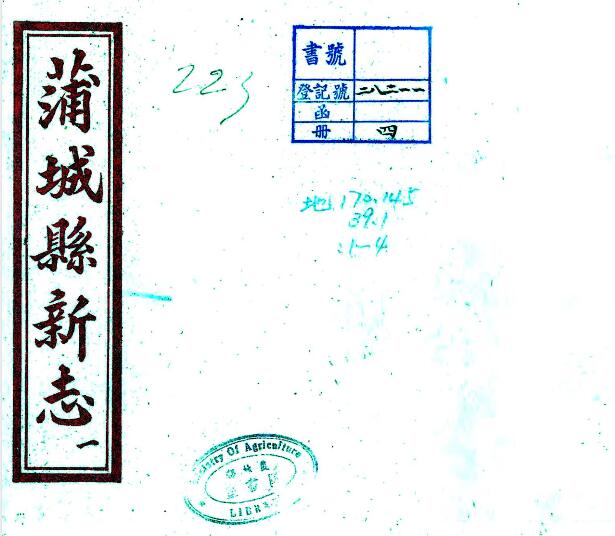 蒲城縣新志
一
223
書號
登記號 二八二一一
函
冊 四
地170.145
39.1
:1-4
Ministry Of Agriculture
LIBRARY